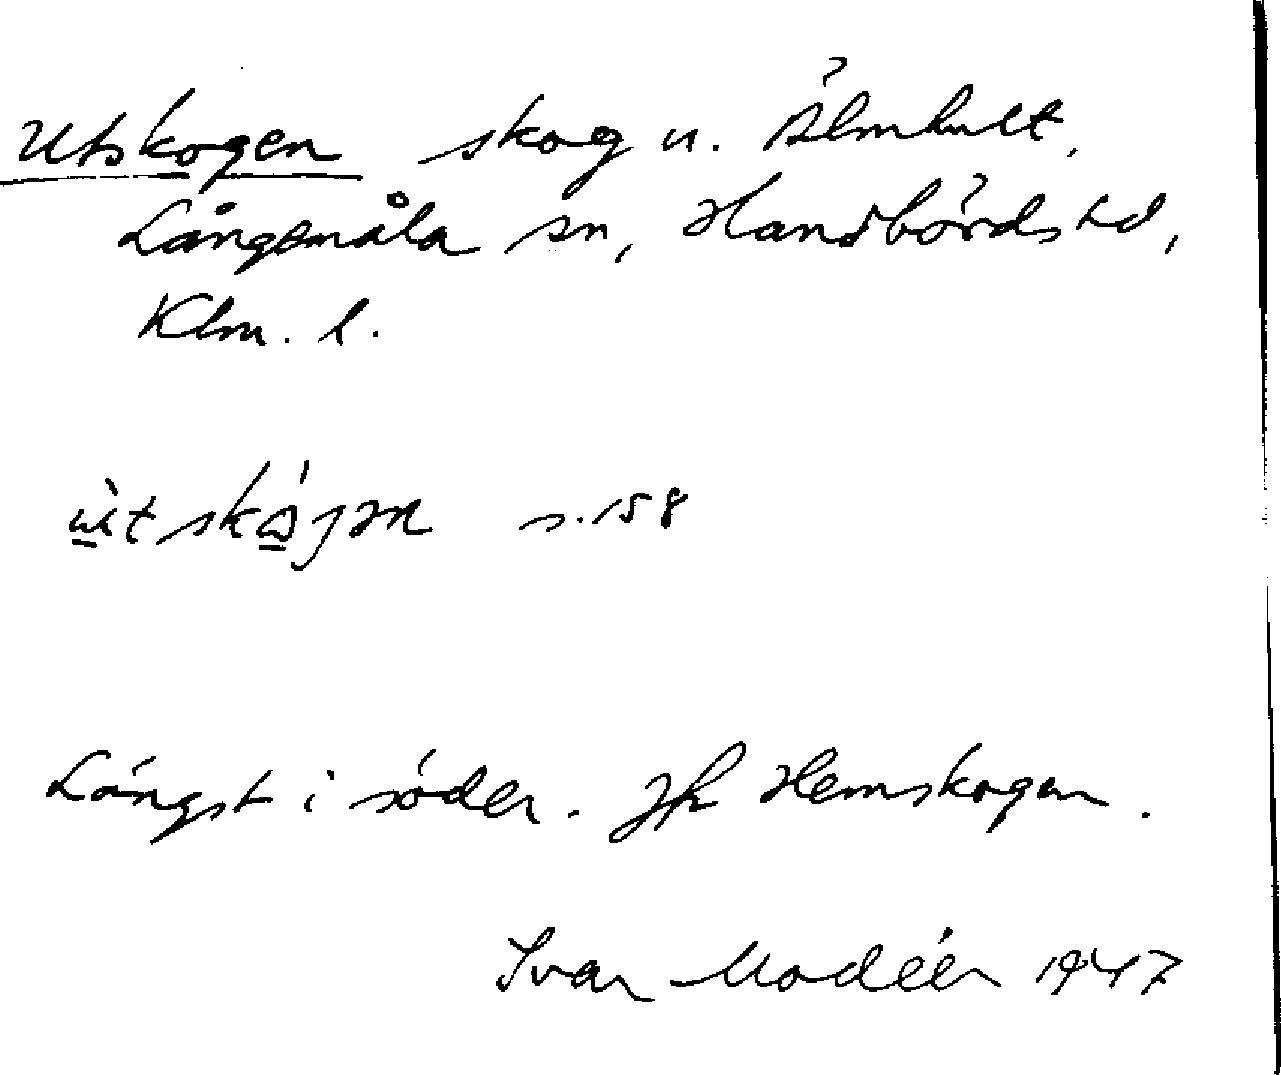 Utskogen skog u. Älmhult,
Långemåla sn, Handbörds hd,
Klm. l.
s. 158
Längst i söder. Jfr Hemskogen.
Ivar Modéer 1947